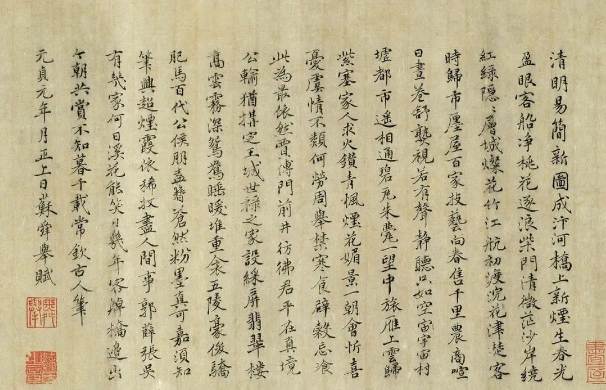 清明易簡新圖成汴河橋上新煙生春光
盈眼客船淨桃花逐浪柴門清微茫沙岸繞
紅綠隱隱層城燦花竹江航初渡浣花津楚客
時歸市廛屋百家技藝向春售千里農商喧
日晝卷舒襲視若有聲靜聽只如空宙宇宙村
墟都市遙相通碧瓦朱甍一望中旅雁上雲歸
紫塞家人求火鑽青楓煙花媚景一朝會忻喜
憂虞情不類何勞周舉禁寒食辟穀忌飡
此為最依然賈傅門前井彷彿君平在真境
公輸猶搆定王城世祿之家設綵屏翡翠樓
高雲霧深鴛鴦睡暖堆重衾五陵豪俊驕
肥馬百代公侯朋盍簪蒼然粉墨真可嘉須知
筆興超煙霞依稀收盡人間事郭薛張吳
有幾家何日溪花能笑日幾年容棹橋邊出
今朝共賞不知暮千載常欽古人筆
元貞元年月正上日蘇舜舉賦